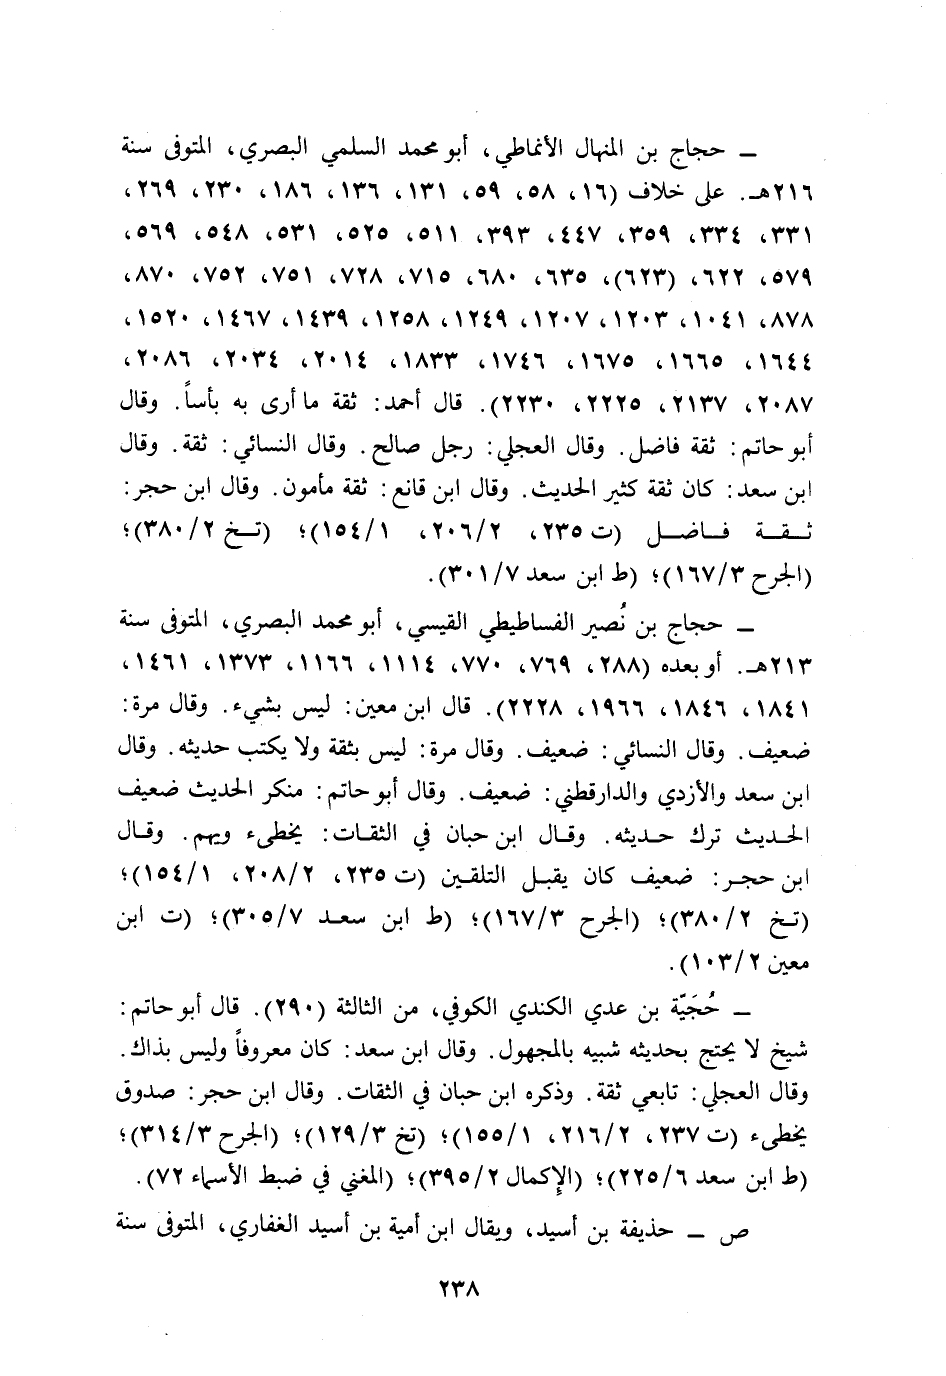 ــ حجاج بن المنهال الأنماطي، أبو محمد السلمي البصري، المتوفى سنة
٢١٦هـ. على خلاف (١٦، ٥٨، ٥٩، ١٣١، ١٣٦، ١٨٦، ٢٣٠، ٢٦٩،
٣٣١، ٣٣٤، ٣٥٩، ٤٤٧، ٣٩٣، ٥١١، ٥٢٥، ٥٣١، ٥٤٨، ٥٦٩،
٥٧٩، ٦٢٢، (٦٢٣)، ٦٣٥، ٦٨٠، ٧١٥، ٧٢٨، ٧٥١، ٧٥٢، ٨٧٠،
٨٧٨، ١٠٤١، ١٢٠٣، ١٢٠٧، ١٢٤٩، ١٢٥٨، ١٤٣٩، ١٤٦٧، ١٥٢٠،
١٦٤٤، ١٦٦٥، ١٦٧٥، ١٧٤٦، ١٨٣٣، ٢٠١٤، ٢٠٣٤، ٢٠٨٦،
٢٠٨٧، ٢١٣٧، ٢٢٢٥، ٢٢٣٠). قال أحمد: ثقة ما أرى به بأساً. وقال
أبو حاتم: ثقة فاضل. وقال العجلي: رجل صالح. وقال النسائي: ثقة. وقال
ابن سعد: كان ثقة كثير الحديث. وقال ابن قانع: ثقة مأمون. وقال ابن حجر:
ثـقـة فـاضـل (ت ٢٣٥، ٢٠٦/٢، ١٥٤/١)؛ (تـخ ٣٨٠/٢)؛
(الجرح ١٦٧/٣)؛ (ط ابن سعد ٣٠١/٧).
ــ حجاج بن نُصير الفساطيطي القيسي، أبو محمد البصري، المتوفى سنة
٢١٣هـ. أو بعده (٢٨٨، ٧٦٩، ٧٧٠، ١١١٤، ١١٦٦، ١٣٧٣، ١٤٦١،
١٨٤١، ١٨٤٦، ١٩٦٦، ٢٢٢٨). قال ابن معين: ليس بشيء. وقال مرة:
ضعيف. وقال النسائي: ضعيف. وقال مرة: ليس بثقة ولا يكتب حديثه. وقال
ابن سعد والأزدي والدارقطني: ضعيف. وقال أبو حاتم: منكر الحديث ضعيف
الحـديث ترك حـديثه. وقـال ابن حبان في الثقـات: يخطىء ويهم. وقـال
ابن حجـر: ضعيف كان يقبـل التلقـين (ت ٢٣٥، ٢٠٨/٢، ١٥٤/١)؛
(تـخ ٣٨٠/٢)؛ (الجرح ١٦٧/٣)؛ (ط ابن سعـد ٣٠٥/٧)؛ (ت ابن
معين ١٠٣/٢).
ــ حُجَيّة بن عدي الكندي الكوفي، من الثالثة (٢٩٠). قال أبو حاتم:
شيخ لا يحتج بحديثه شبيه بالمجهول. وقال ابن سعد: كان معروفاً وليس بذاك.
وقال العجلي: تابعي ثقة. وذكره ابن حبان في الثقات. وقال ابن حجر: صدوق
يخطىء (ت ٢٣٧، ٢١٦/٢، ١٥٥/١)؛ (تخ ١٢٩/٣)؛ (الجرح ٣١٤/٣)؛
(ط ابن سعد ٢٢٥/٦)؛ (الإكمال ٣٩٥/٢)؛ (المغني في ضبط الأسماء ٧٢).
ص ــ حذيفة بن أسيد، ويقال ابن أمية بن أسيد الغفاري، المتوفى سنة
٢٣٨